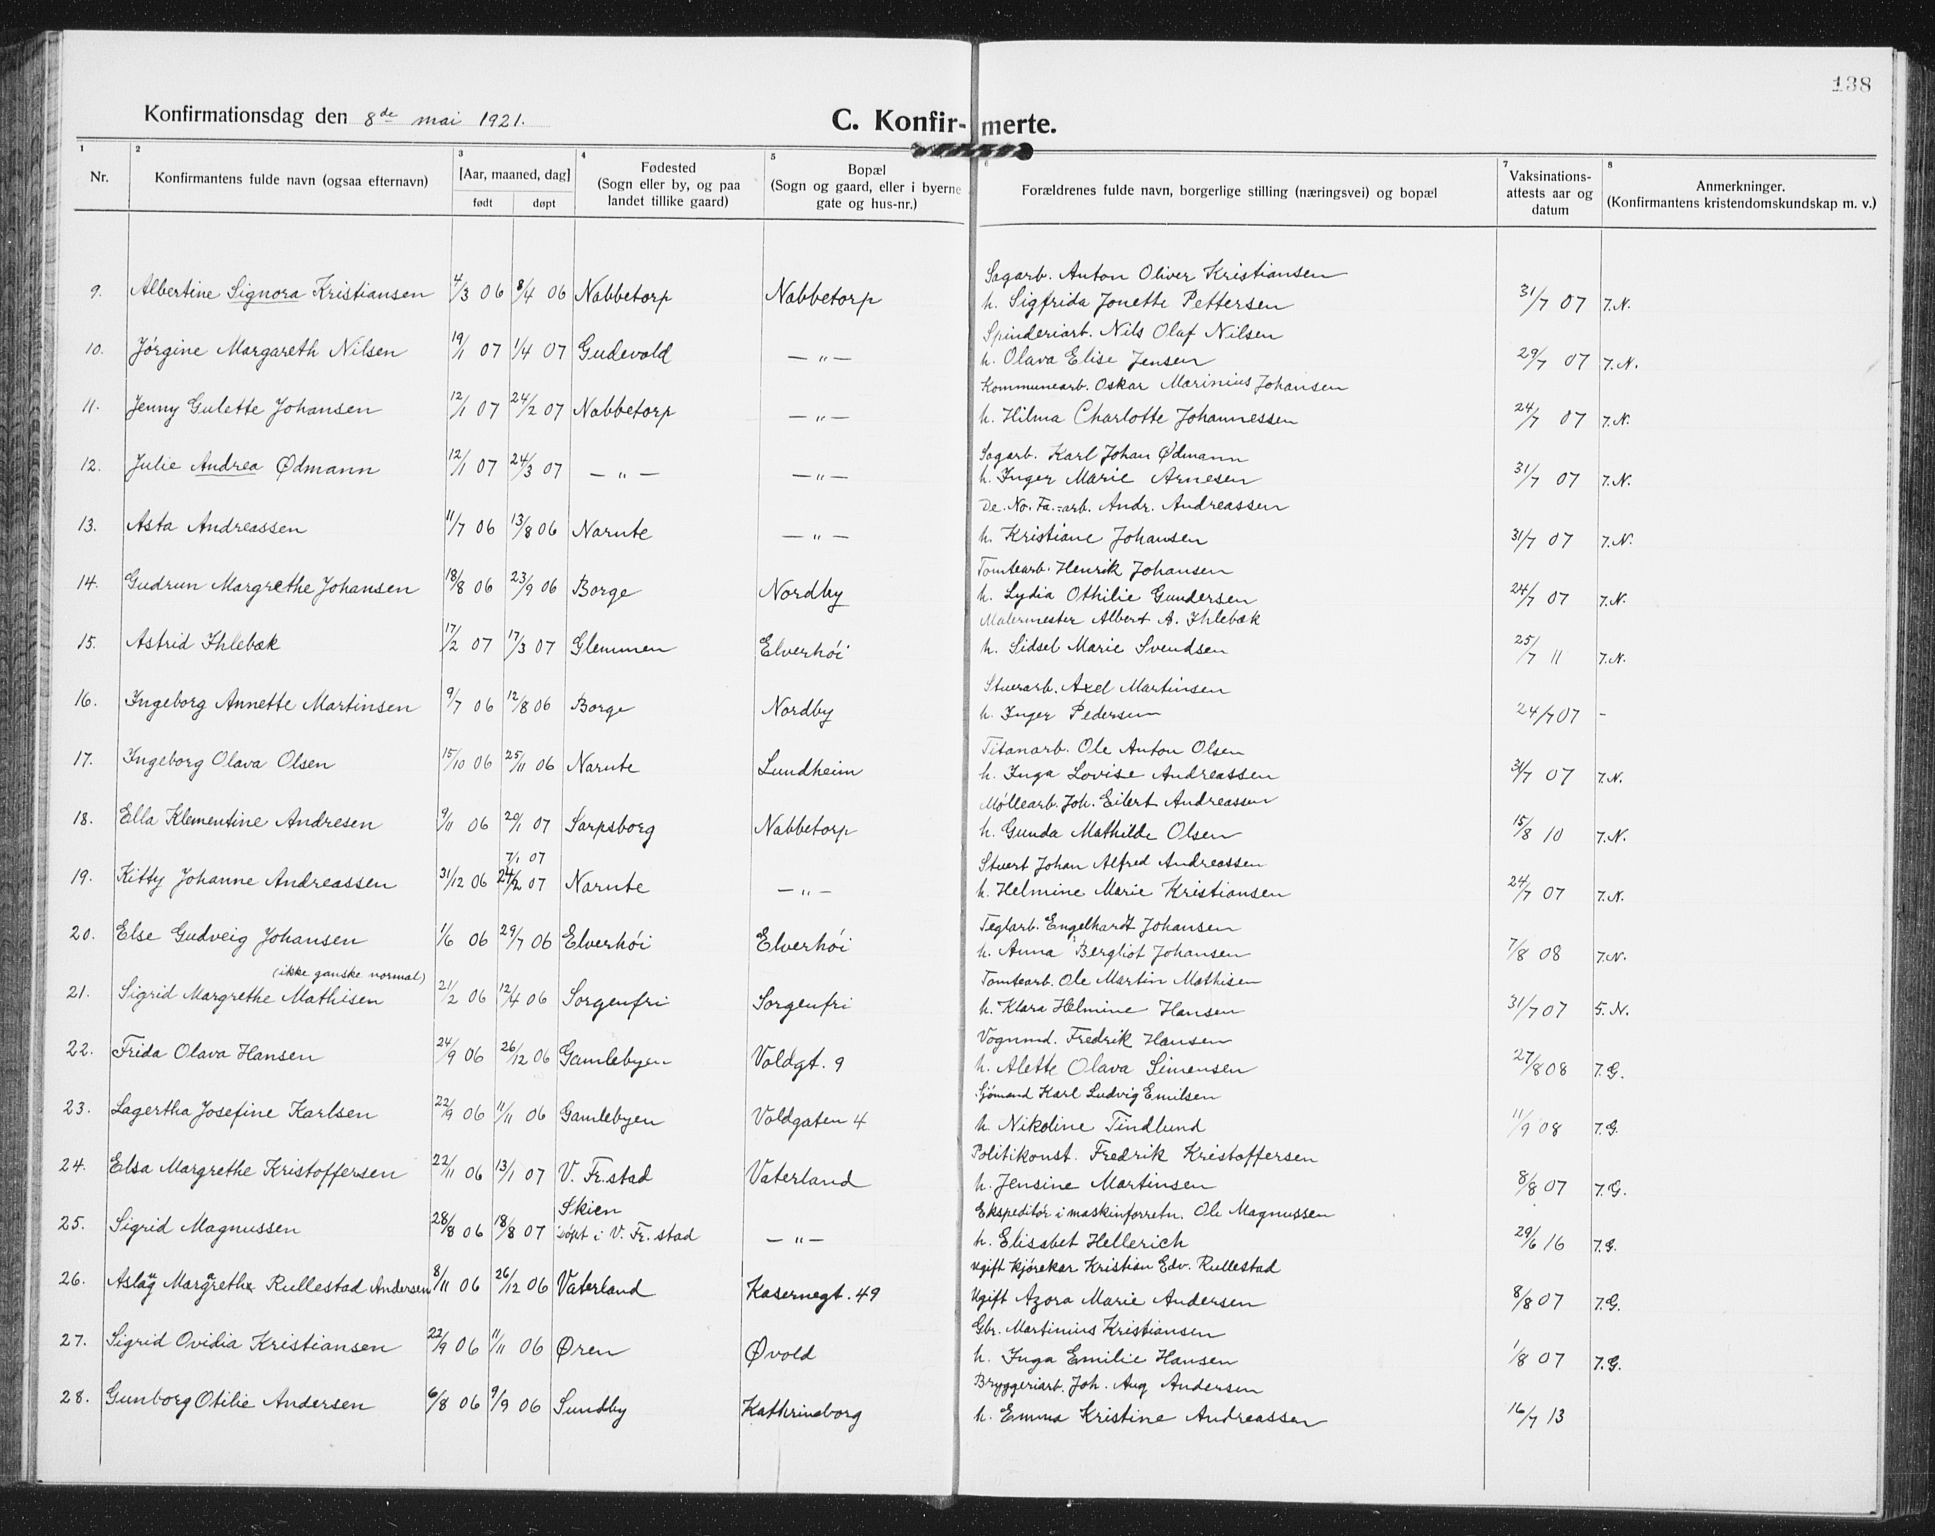 138
Konfirmationsdag den 8de mai 1921.
C. Konfir- merte.
1 2 3 4 5 6 7 8
Nr. Konfirmantens fulde navn (ogsaa efternavn) [Aar, maaned, dag] født døpt Fødested (Sogn eller by, og paa landet tillike gaard) Bopæl (Sogn og gaard, eller i byerne gate og hus-nr.) Forældrenes fulde navn, borgerlige stilling (næringsvei) og bopæl Vaksinations-attests aar og datum Anmerkninger. (Konfirmantens kristendomskundskap m. v.)
Sagarb. Anton Oliver Kristiansen
9. Albertine Signora Kristiansen 4/3 06 8/4 06 Nabbetorp Nabbetorp h. Sigfrida Jonette Pettersen 31/7 07 7.N.
Spinderiarb. Nils Olaf Nilsen
10. Jørgine Margareth Nilsen 19/1 07 1/4 07 Gudevold — „ — h. Olava Elise Jensen 29/7 07 7.N.
Kommunearb. Oskar Marinius Johansen
11. Jenny Gulette Johansen 12/1 07 24/2 07 Nabbetorp — „ — h. Hilma Charlotte Johannessen 24/7 07 7.N.
Sagarb. Karl Johan Ødmann
12. Julie Andrea Ødmann 12/1 07 24/3 07 — „ — — „ — h. Inger Marie Arnesen 31/7 07 7.N.
De. No. Fa.-arb. Andr. Andreassen
13. Asta Andreassen 11/7 06 13/8 06 Narnte — „ — h. Kristiane Johansen 31/7 07 7.N.
Tomtearb. Henrik Johansen
14. Gudrun Margrethe Johansen 18/8 06 23/9 06 Borge Nordby h. Lydia Othilie Gundersen 24/7 07 7.N.
Malermester Albert A. Ihlebæk
15. Astrid Ihlebæk 17/2 07 17/3 07 Glemmen Elverhöi h. Sidsel Marie Svendsen 25/7 11 7.N.
Stuerarb. Axel Martinsen
16. Ingeborg Annette Martinsen 9/7 06 12/8 06 Borge Nordby h. Inger Pedersen 24/7 07 -
Titanarb. Ole Anton Olsen
17. Ingeborg Olava Olsen 15/10 06 25/11 06 Narnte Lundheim h. Inga Lovise Andreassen 31/7 07 7.N.
Møllearb. Joh. Eilert Andreassen
18. Ella Klementine Andresen 9/11 06 20/1 07 Sarpsborg Nabbetorp h. Gunda Mathilde Olsen 15/8 10 7.N.
7/1 07 Stuert Johan Alfred Andreassen
19. Kitty Johanne Andreassen 31/12 06 24/2 07 Narnte — „ — h. Helmine Marie Kristiansen 24/7 07 7.N.
Teglarb. Engelhardt Johansen
20. Else Gudveig Johansen 1/6 06 29/7 06 Elverhöi Elverhöi h. Anna Bergliot Johansen 7/8 08 7.N.
(ikke ganske normal) Tomtearb. Ole Martin Mathisen
21. Sigrid Margrethe Mathisen 21/2 06 12/4 06 Sorgenfri Sorgenfri h. Klara Helmine Hansen 31/7 07 5.N.
Vognmd. Fredrik Hansen
22. Frida Olava Hansen 24/9 06 26/12 06 Gamlebyen Voldgt. 9 h. Alette Olava Simensen 27/8 08 7.G.
Sjömand Karl Ludvig Emilsen
23. Lagertha Josefine Karlsen 22/9 06 11/11 06 Gamlebyen Voldgaten 4 h. Nikoline Tindlund 11/9 08 7.G.
Politikonst. Fredrik Kristoffersen
24. Elsa Margrethe Kristoffersen 22/11 06 13/1 07 V. Fr.stad Vaterland h. Jensine Martinsen 8/8 07 7.G.
Skien Ekspeditör i maskinforretn. Ole Magnussen
25. Sigrid Magnussen 28/8 06 18/8 07 döpt i V. Fr. stad — „ — h. Elisabet Hellerich 29/6 16 7.G.
Ugift kjörekar Kristian Edv. Rullestad
26. Aslaug Margareth Rullestad Andersen 8/11 06 26/12 06 Vaterland Kasernegt. 49 Ugift Azora Marie Andersen 8/8 07 7.G.
Gbr. Martinius Kristiansen
27. Sigrid Ovidia Kristiansen 22/9 06 11/11 06 Øren Øvold h. Inga Emilie Hansen 1/8 07 7.G.
Bryggeriarb. Joh. Aug Andersen
28. Gunborg Otilie Andersen 6/8 06 9/9 06 Sundby Kathrineborg h. Emma Kristine Andreassen 16/7 13